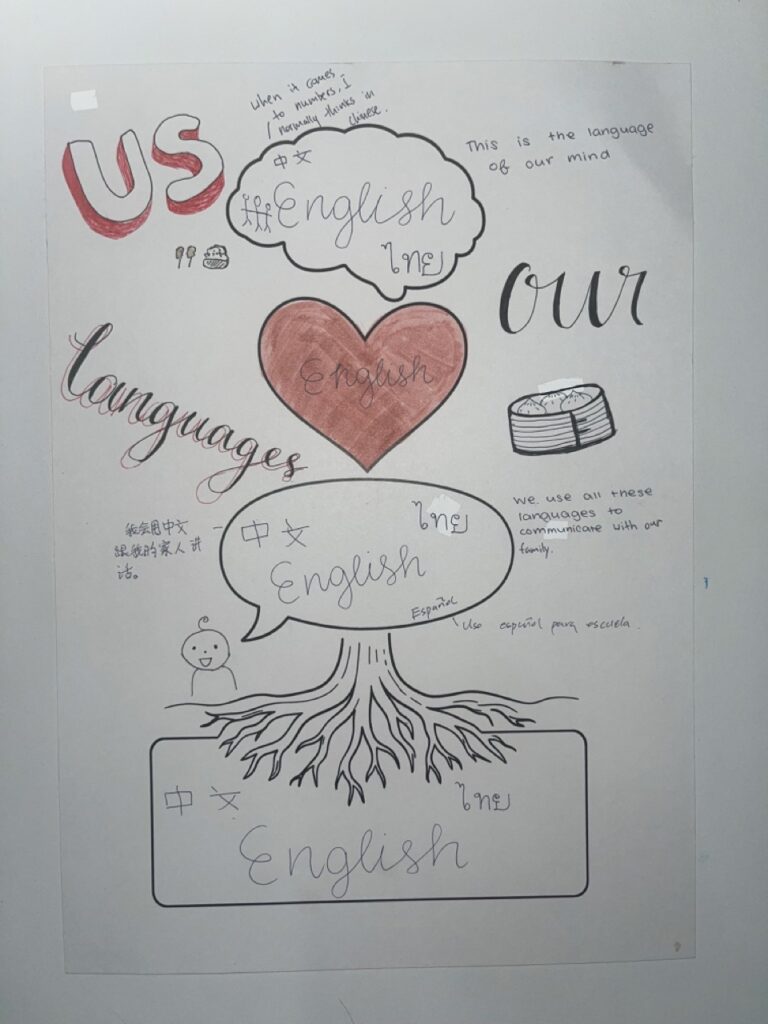 when it comes
to numbers, I
normally thinks in
Chinese.
US
中文
English
ไทย
This is the language
of our mind
our
English
languages
中文
ไทย
English
Español
我会用中文
跟我的家人讲
话。
We use all these
languages to
communicate with our
family.
Uso español para escuela.
中文
ไทย
English